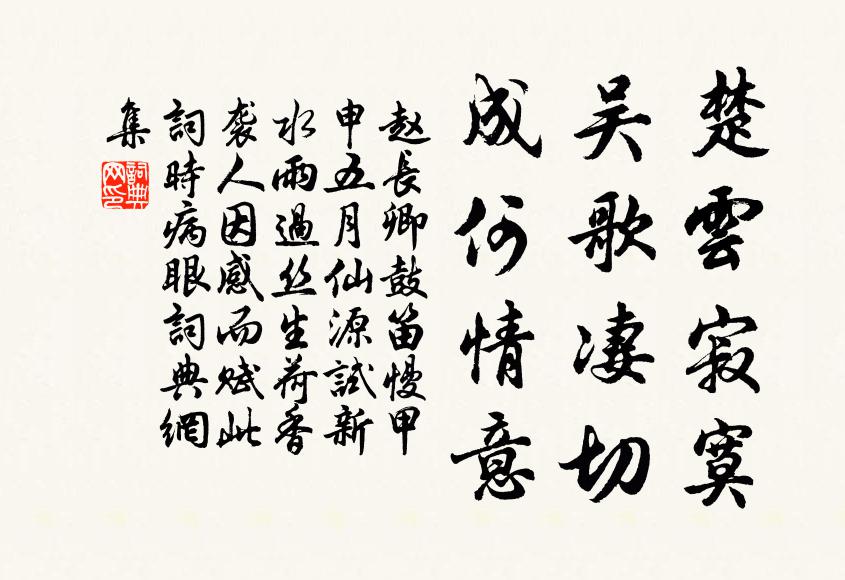 楚雲寂寞
吴歌凄切
成何情意
赵長卿鼓笛慢甲
申五月仙源試新
水雨過丝生荷香
袭人因感而赋此
詞時病眼詞典網
集
詞典
网印